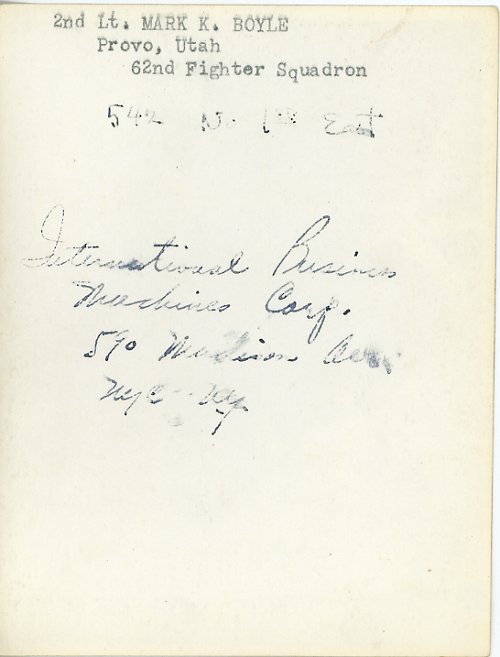 2nd Lt. MARK K. BOYLE
Provo, Utah
62nd Fighter Squadron
542 No 1st East
International Business
Machines Corp.
590 Madison Ave.
NYC NY